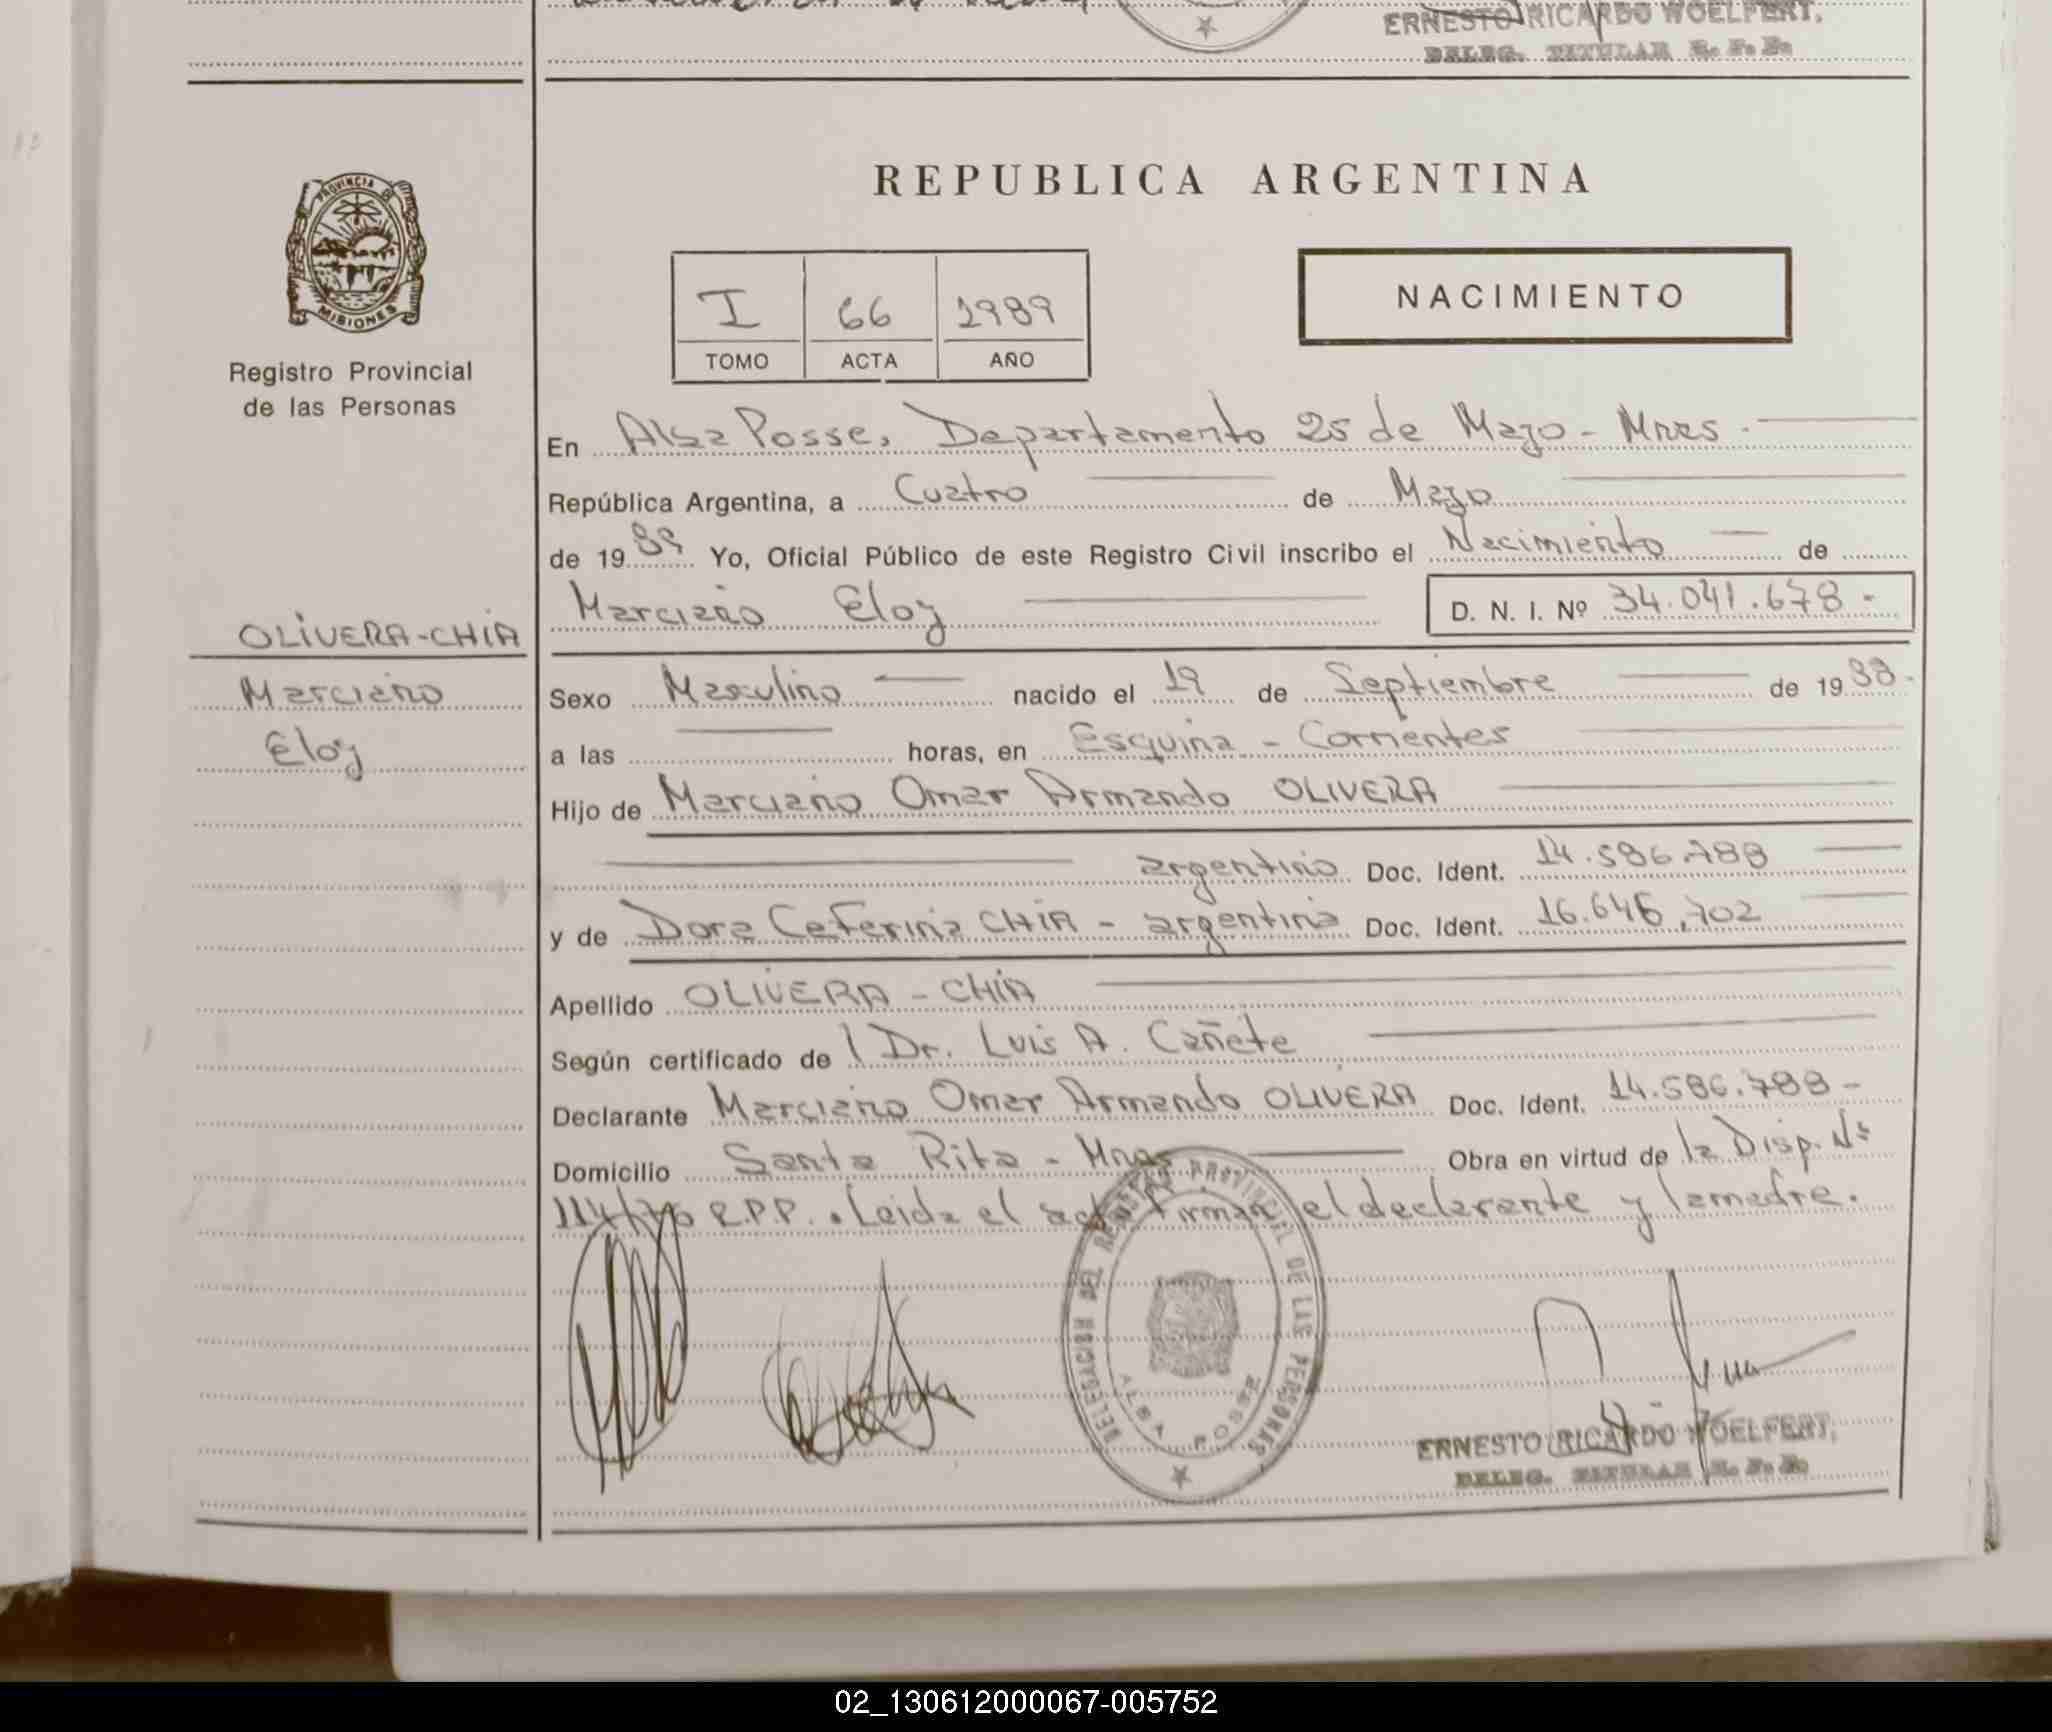 ERNESTO RICARDO WOELFERT,
DELEG. TITULAR R. P. P.
PROVINCIA D
MISIONES
Registro Provincial
de las Personas
REPUBLICA ARGENTINA
I 66 1989
TOMO ACTA AÑO
NACIMIENTO
En Alba Posse, Departamento 25 de Mayo - Mnes.
República Argentina, a Cuatro de Mayo
de 1989 Yo, Oficial Público de este Registro Civil inscribo el Nacimiento de
Marciano Eloy D. N. I. Nº 34.041.678.-
OLIVERA-CHIA
Marciano
Eloy
Sexo Masculino nacido el 19 de Septiembre de 1988.
a las horas, en Esquina - Corrientes
Hijo de Marciano Omar Armando OLIVERA
argentino Doc. Ident. 14.586.788
y de Dora Ceferina CHIA - argentina Doc. Ident. 16.646.702
Apellido OLIVERA - CHIA
Según certificado de Dr. Luis A. Cañete
Declarante Marciano Omar Armando OLIVERA Doc. Ident. 14.586.788-
Domicilio Santa Rita - Mnes Obra en virtud de la Disp. Nº
114/76 R.P.P. . Leida el acta firman el declarante y la madre.
DELEGACION DEL REGISTRO PROVINCIAL DE LAS PERSONAS
ALBA POSSE
ERNESTO RICARDO WOELFERT,
DELEG. TITULAR R. P. P.
02_130612000067-005752